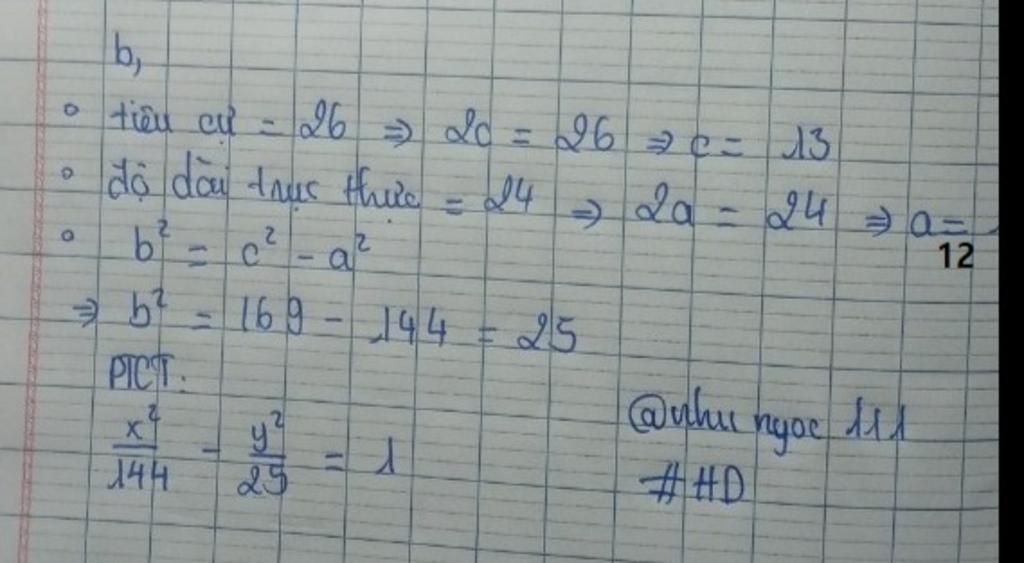 b,
∘ tiêu cự = 26 ⇒ 2c = 26 ⇒ c = 13
∘ độ dài trục thực = 24 ⇒ 2a = 24 ⇒ a =
12
∘ b² = c² - a²
⇒ b² = 169 - 144 = 25
PTCT:
x²/144 - y²/25 = 1
@nhu ngoc 111
#HD